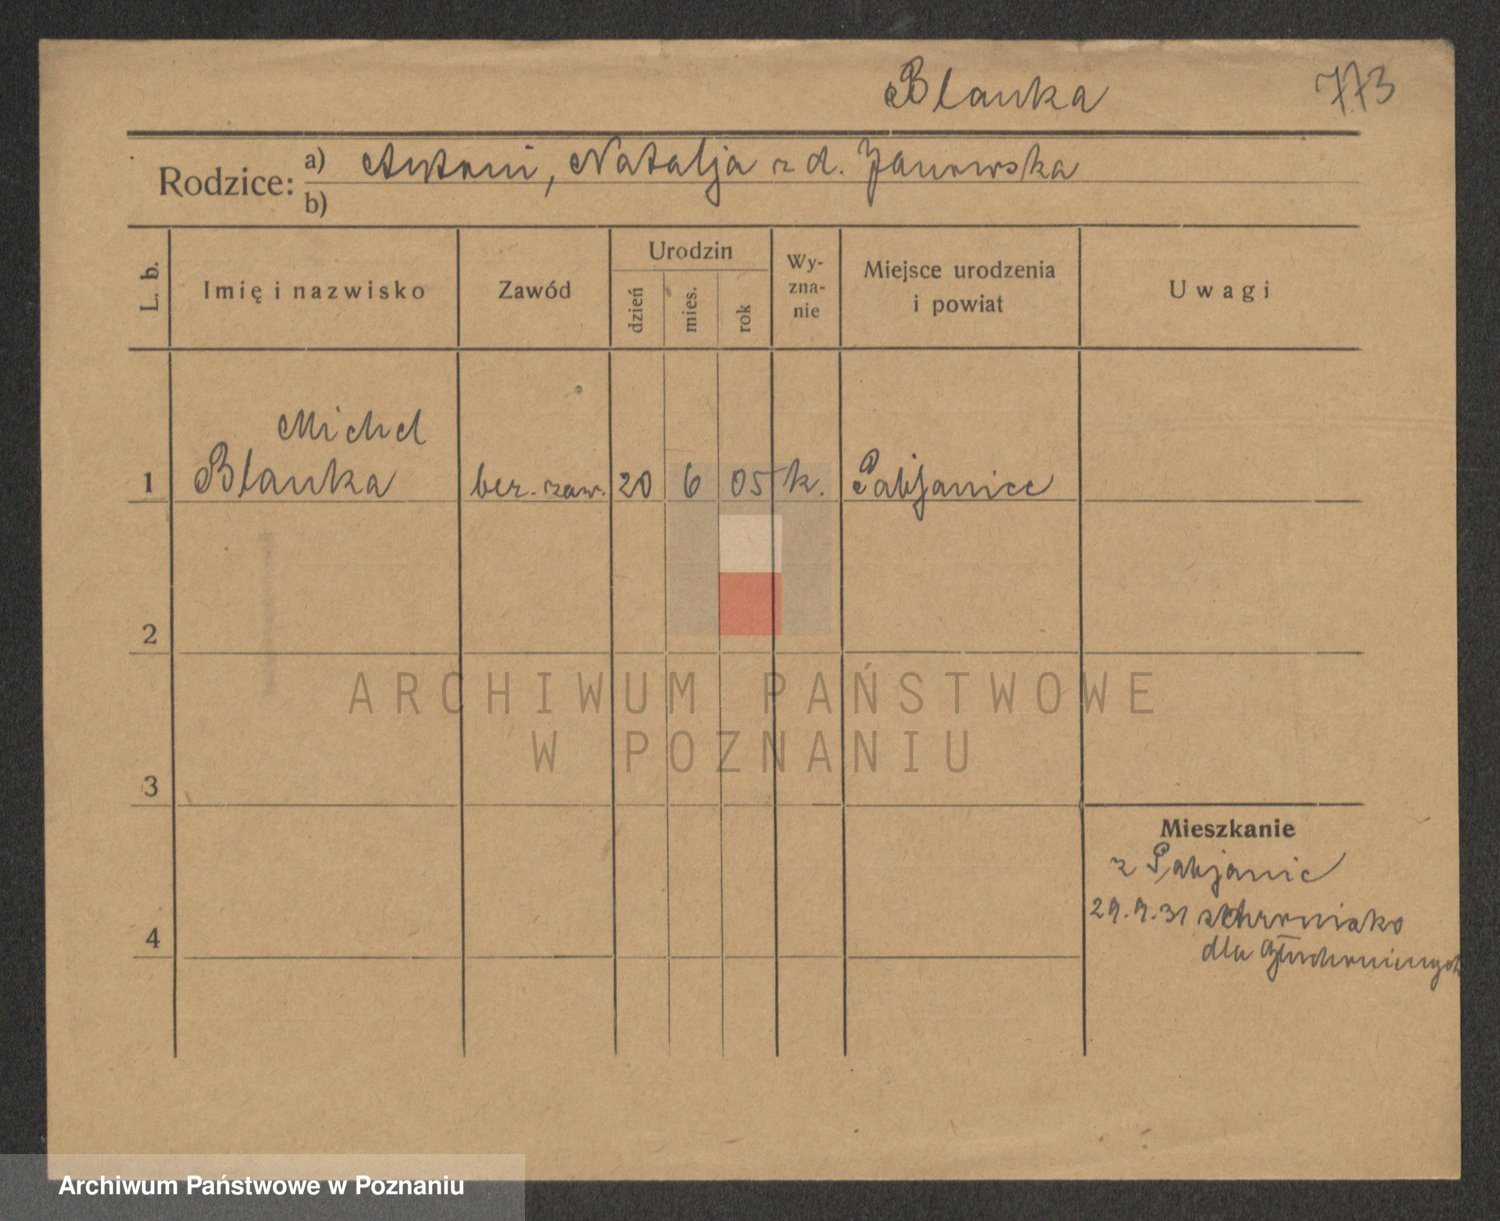 Blanka 773
Rodzice: a) Antoni, Natalja z d. Janowska
b)
L. b. Imię i nazwisko Zawód Urodzin dzień mies. rok Wy-zna-nie Miejsce urodzenia i powiat Uwagi
Michel
1 Blanka bez. zaw. 20 6 05 k. Pabjanice
2
ARCHIWUM PAŃSTWOWE
W POZNANIU
3
Mieszkanie
z Pabjanic
29.9.31 schronisko
4
dla Głuchoniemych
Archiwum Państwowe w Poznaniu